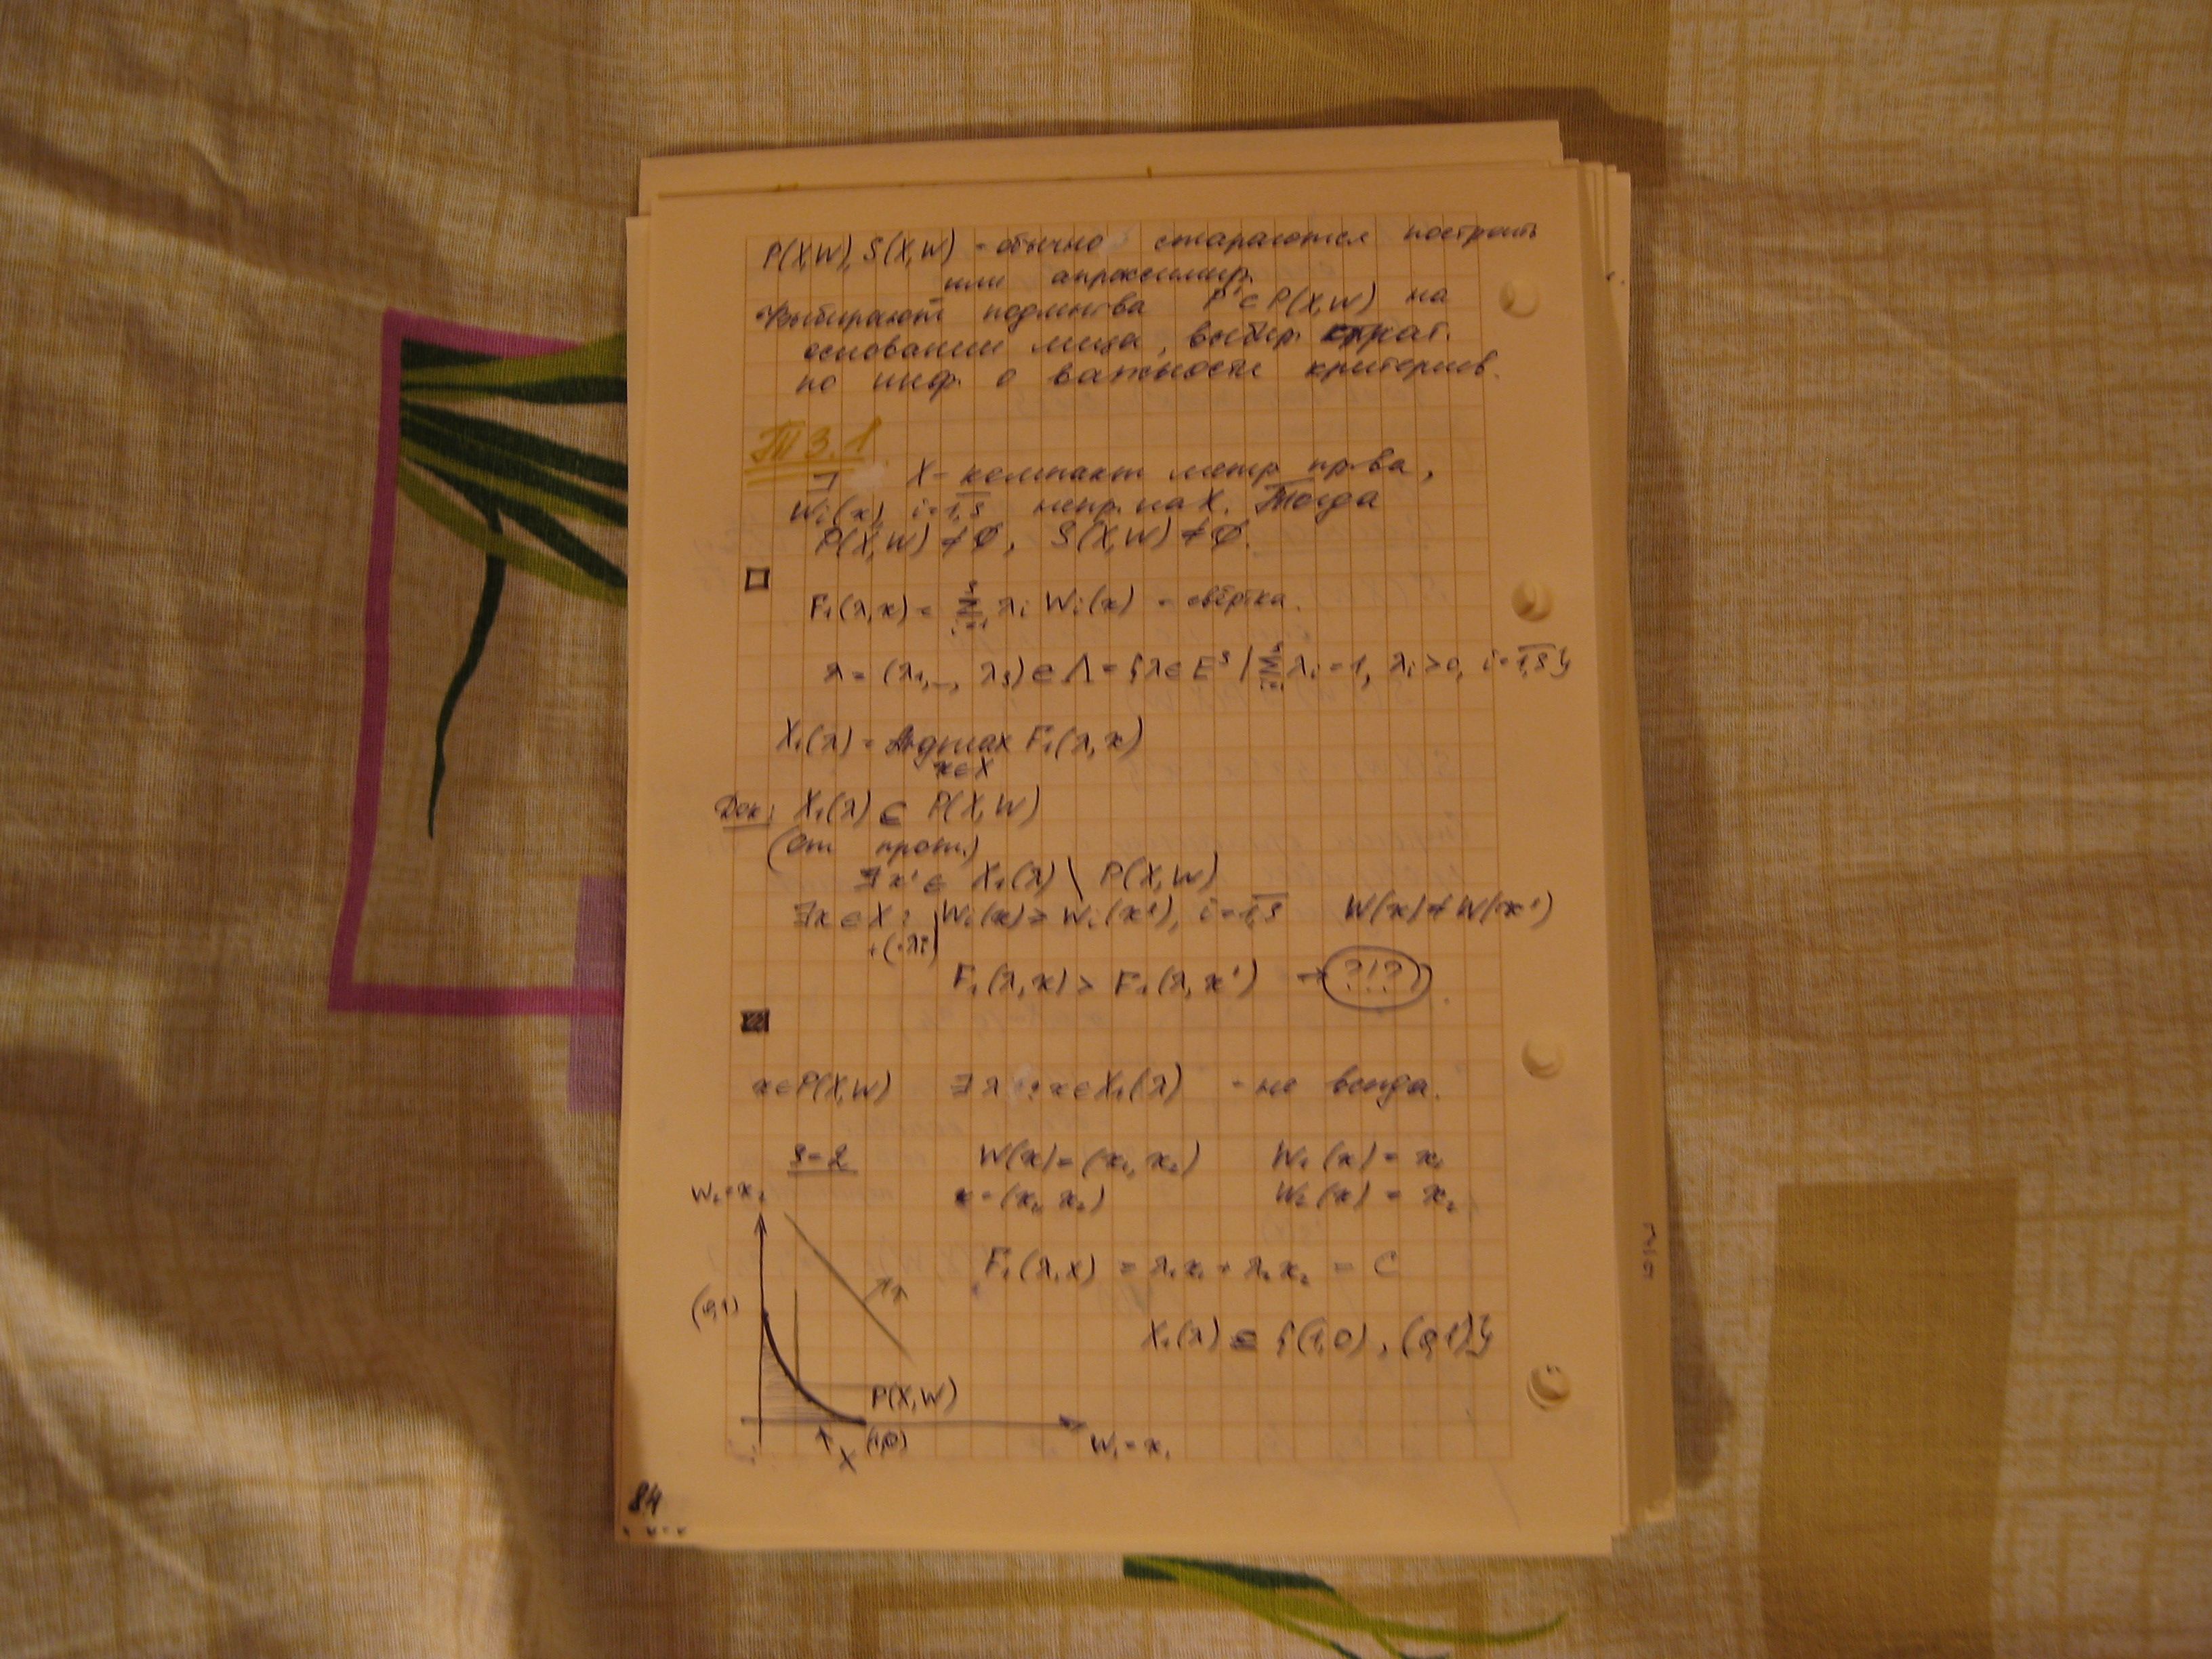 P(X,W), S(X,W) - обычно стараются построить
или апроксимир.
Выбирают подмн-ва P' ⊂ P(X,W) на
основании лица, выбир. страт.
по инф. о важности критериев.
Т 3.1
] X - компакт метр. пр-ва,
Wi(x), i=1,s непр. на X. Тогда
P(X,W) ≠ ∅, S(X,W) ≠ ∅.
□
F₁(λ,x) = Σ_{i=1}^{s} λi Wi(x) - свёртка.
λ = (λ₁,..., λs) ∈ Λ = {λ ∈ E^s | Σ_{i=1}^{s} λi = 1, λi > 0, i = 1,s}
X₁(λ) = Argmax F₁(λ,x)
x∈X
Док: X₁(λ) ⊆ P(X,W)
(От прот.)
∃ x' ∈ X₁(λ) \ P(X,W)
∃x ∈ X : | Wi(x) ≥ Wi(x'), i = 1,s W(x) ≠ W(x')
+(·λi)
F₁(λ,x) > F₁(λ,x') → ?!?
■
x ∈ P(X,W) ∃ λ : x ∈ X₁(λ) - не всегда.
s = 2 W(x) = (x₁, x₂) W₁(x) = x₁
W₂ = x₂ x = (x₁, x₂) W₂(x) = x₂
F₁(λ,x) = λ₁x₁ + λ₂x₂ = C
λ
(0,1)
X₁(λ) ⊆ {(1,0), (0,1)}
P(X,W)
X (1,0) W₁ = x₁
84